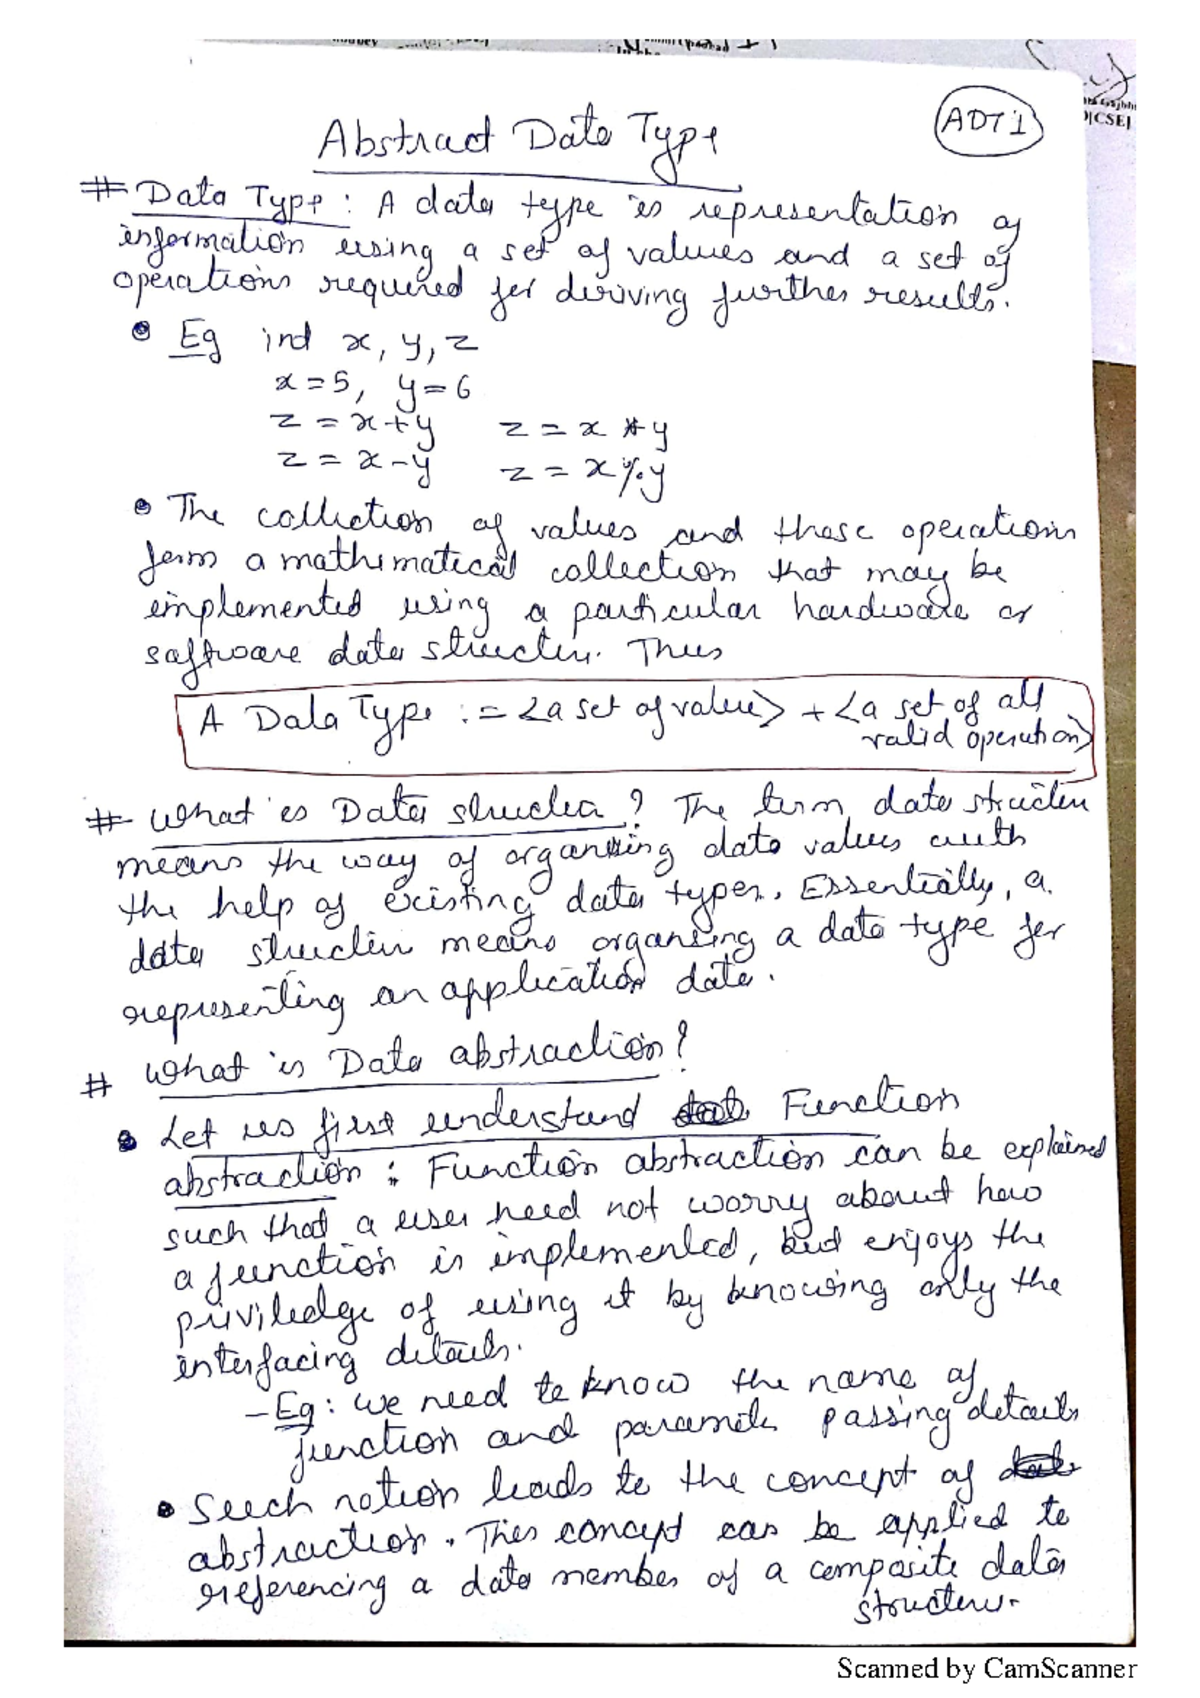 ADT 1
Abstract Data Type
# Data Type : A data type is representation of
information using a set of values and a set of
operations required for deriving further results.
Eg int x, y, z
x = 5, y = 6
z = x + y z = x * y
z = x - y z = x % y
The collection of values and those operations
form a mathematical collection that may be
implemented using a particular hardware or
software data structure. Thus
A Data Type := <a set of values> + <a set of all
valid operation>
# What is Data structure? The term data structure
means the way of organizing data values with
the help of existing data types. Essentially, a
data structure means organising a data type for
representing an application data.
# What is Data abstraction?
Let us first understand Function
abstraction : Function abstraction can be explained
such that a user need not worry about how
a function is implemented, but enjoys the
priviledge of using it by knowing only the
interfacing details.
- Eg : we need to know the name of
function and parameter passing details
Such notion leads to the concept of
abstraction. This concept can be applied to
referencing a data member of a composite data
structure.
CSE]
Scanned by CamScanner